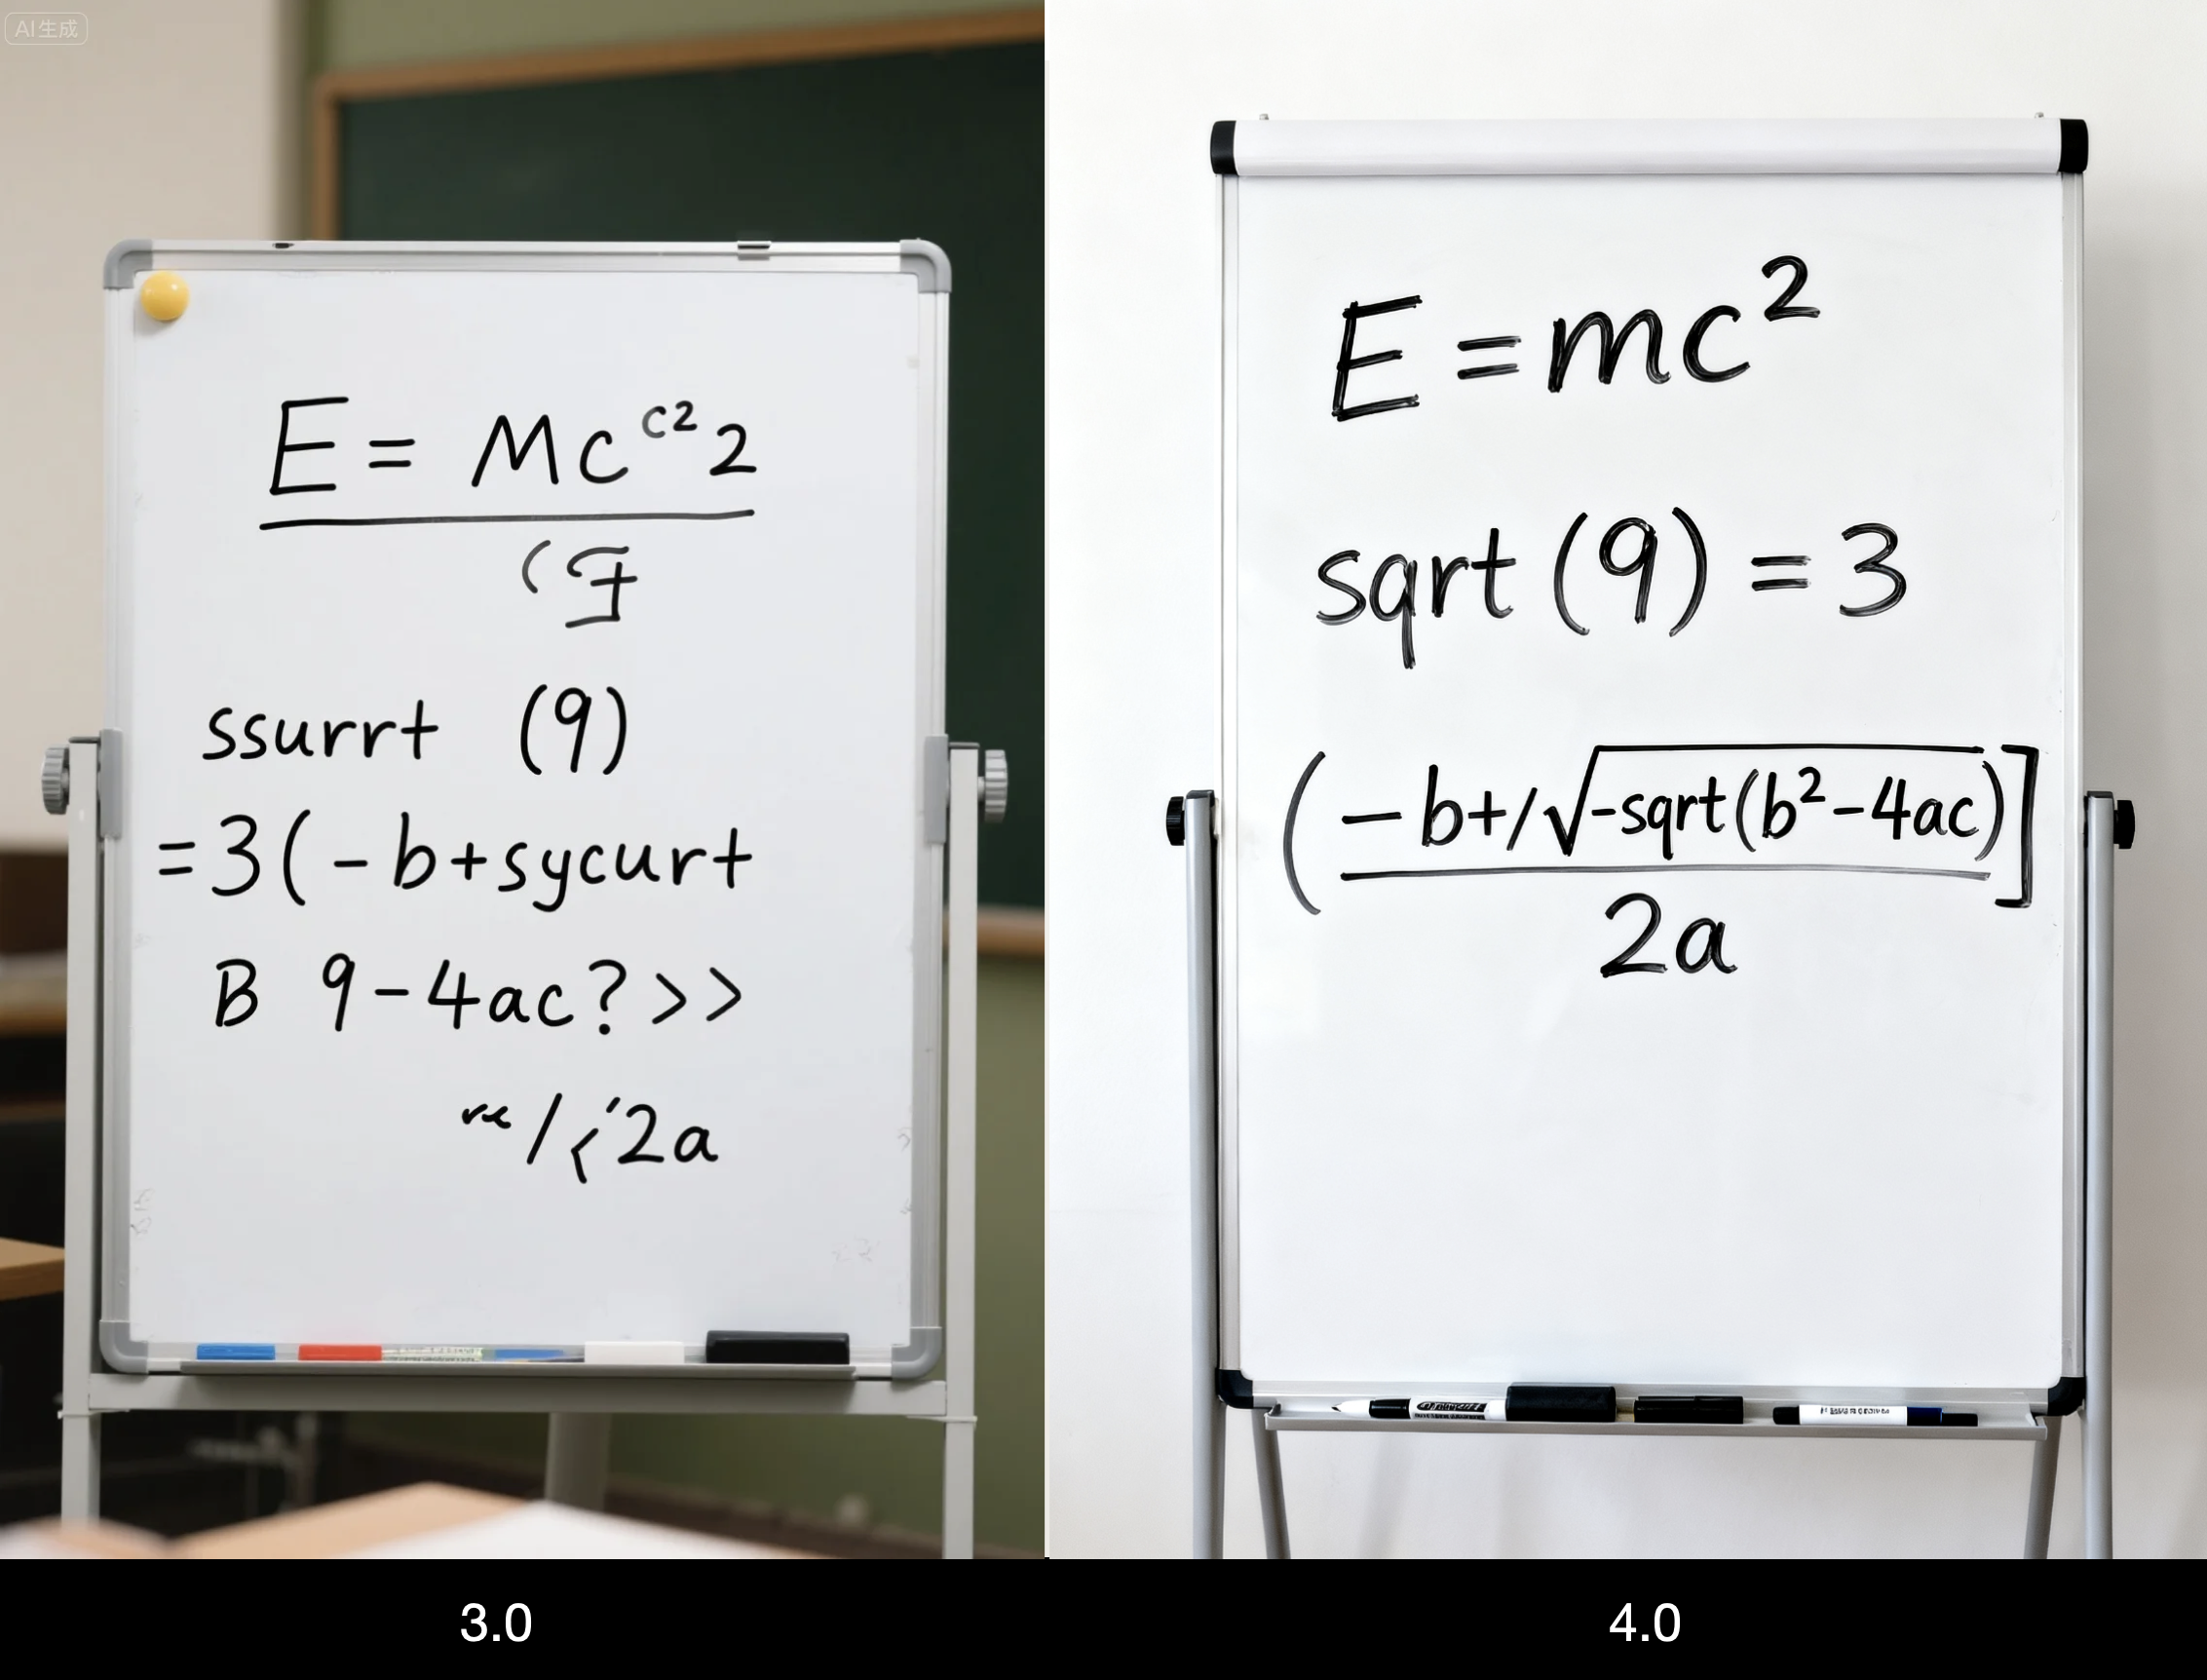 AI生成
E = Mc^c² 2
ssurrt (9)
= 3 ( - b + sycurt
B 9 - 4ac ? > >
/ 2a
E = mc²
sqrt (9) = 3
( - b + / √-sqrt (b² - 4ac) ]
2a
3.0
4.0